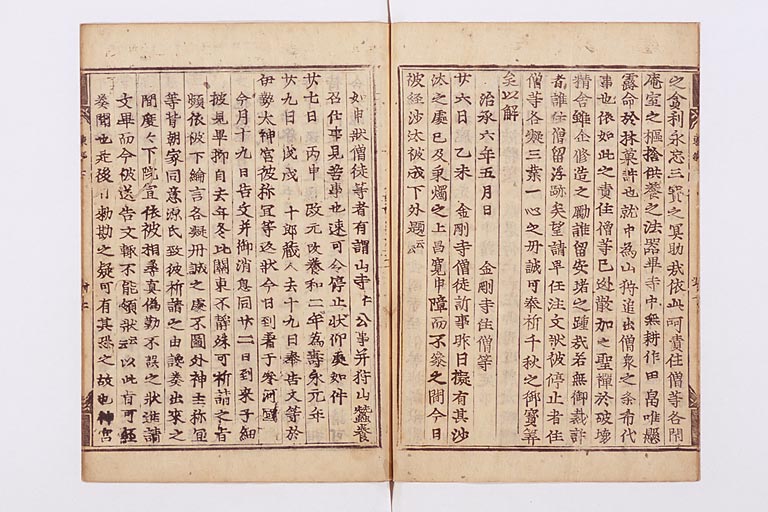 之貪利永忘三宝之冥助我依此呵責住僧等各閇
庵室之樞捨供養之法器畢寺中無耕作田畠唯懸
露命於林菓許也就中為山狩追出僧衆之条希代
事也依如此之責住僧等已逃散加之聖禪於破壊
精舎雖企修造之勵誰留安堵之踵哉若無御裁許
者誰住僧留浮跡矣望請早任注文状被停止者住
僧等各凝三業一心之丹誠可奉祈千秋之御寳算
矣以解
治承六年五月日 金剛寺住僧等
廿六日乙未 金剛寺僧徒訴事昨日擬有其沙
汰之處已及秉燭之上昌寛申障而不參之間今日
被経沙汰被成下外題云云
如申状僧徒等者有謂山寺仁公事并狩山蠶養
召仕事見苦事也速可令停止状仰奥如件
廿七日丙申 改元改養和二年為壽永元年
廿九日戊戌 十郎蔵人去十九日奉告文等於
伊勢太神宮被祢宜等送状今日到着于參河國
今月十九日告文并御消息同廿二日到来子細
披見畢抑自去年冬比關東不静殊可祈請之旨
頻依被下綸言各凝丹誠之處不圖外神主祢宜
等背朝家同意源氏致彼祈請之由讒奏出来之
間度々下院宣依被相尋真偽勤不誤之状進請
文畢而今被送告文輙不能領状云云以此旨可経
奏聞也而後可勅勘之疑可有其恐之故也神宮